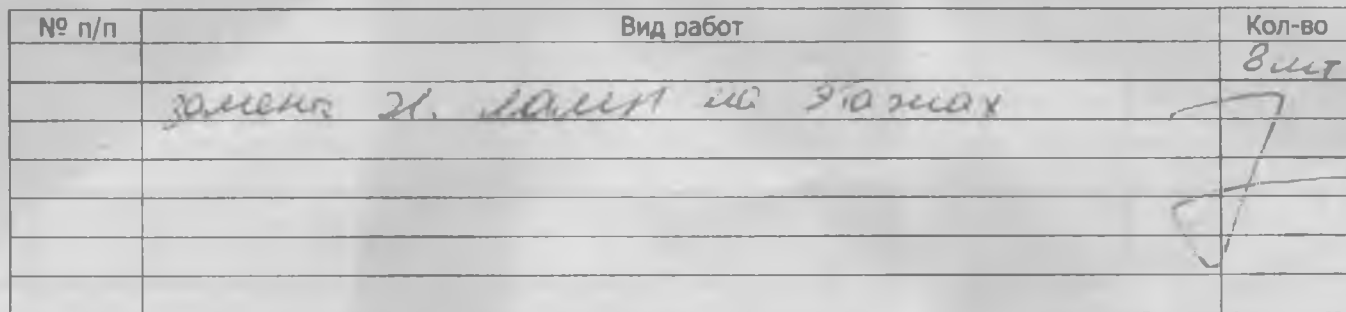 № п/п Вид работ Кол-во
8 шт
замена эл. ламп на этажах